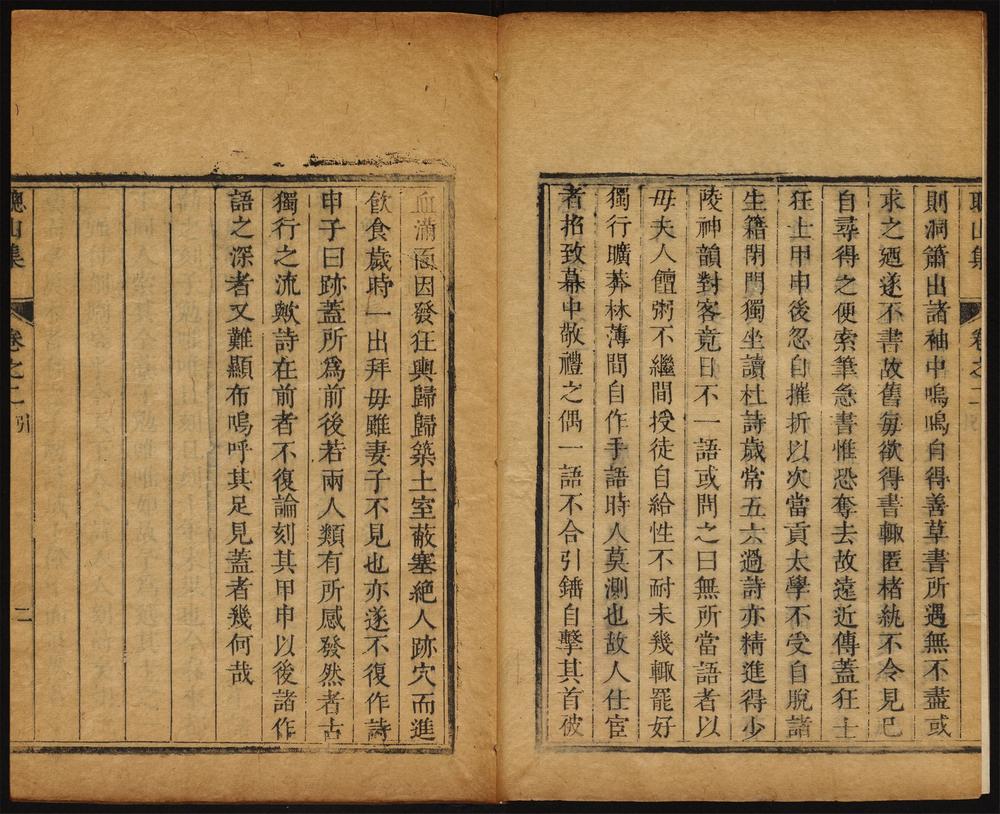 聰山集
卷之二
則洞簫出諸袖中嗚嗚自得善草書所遇無不盡或
求之迺遂不書故舊每欲得書輙匿楮紈不令見已
自尋得之便索筆急書惟恐奪去故遠近傳蓋狂士
狂士甲申後忽自摧折以次當貢太學不受自脫諸
生籍閉門獨坐讀杜詩歲常五六過詩亦精進得少
陵神韻對客竟日不一語或問之曰無所當語者以
母夫人饘粥不繼間授徒自給性不耐未幾輙罷好
獨行曠莽林薄間自作手語時人莫測也故人仕宦
者招致幕中敬禮之偶一語不合引鐇自擊其首破
血滿面因發狂輿歸歸築土室蔽塞絶人跡穴而進
飲食歲時一出拜母雖妻子不見也亦遂不復作詩
申子曰跡蓋所爲前後若兩人類有所感發然者古
獨行之流歟詩在前者不復論刻其甲申以後諸作
語之深者又難顯布嗚呼其足見蓋者幾何哉
聰山集
卷之二 引
二